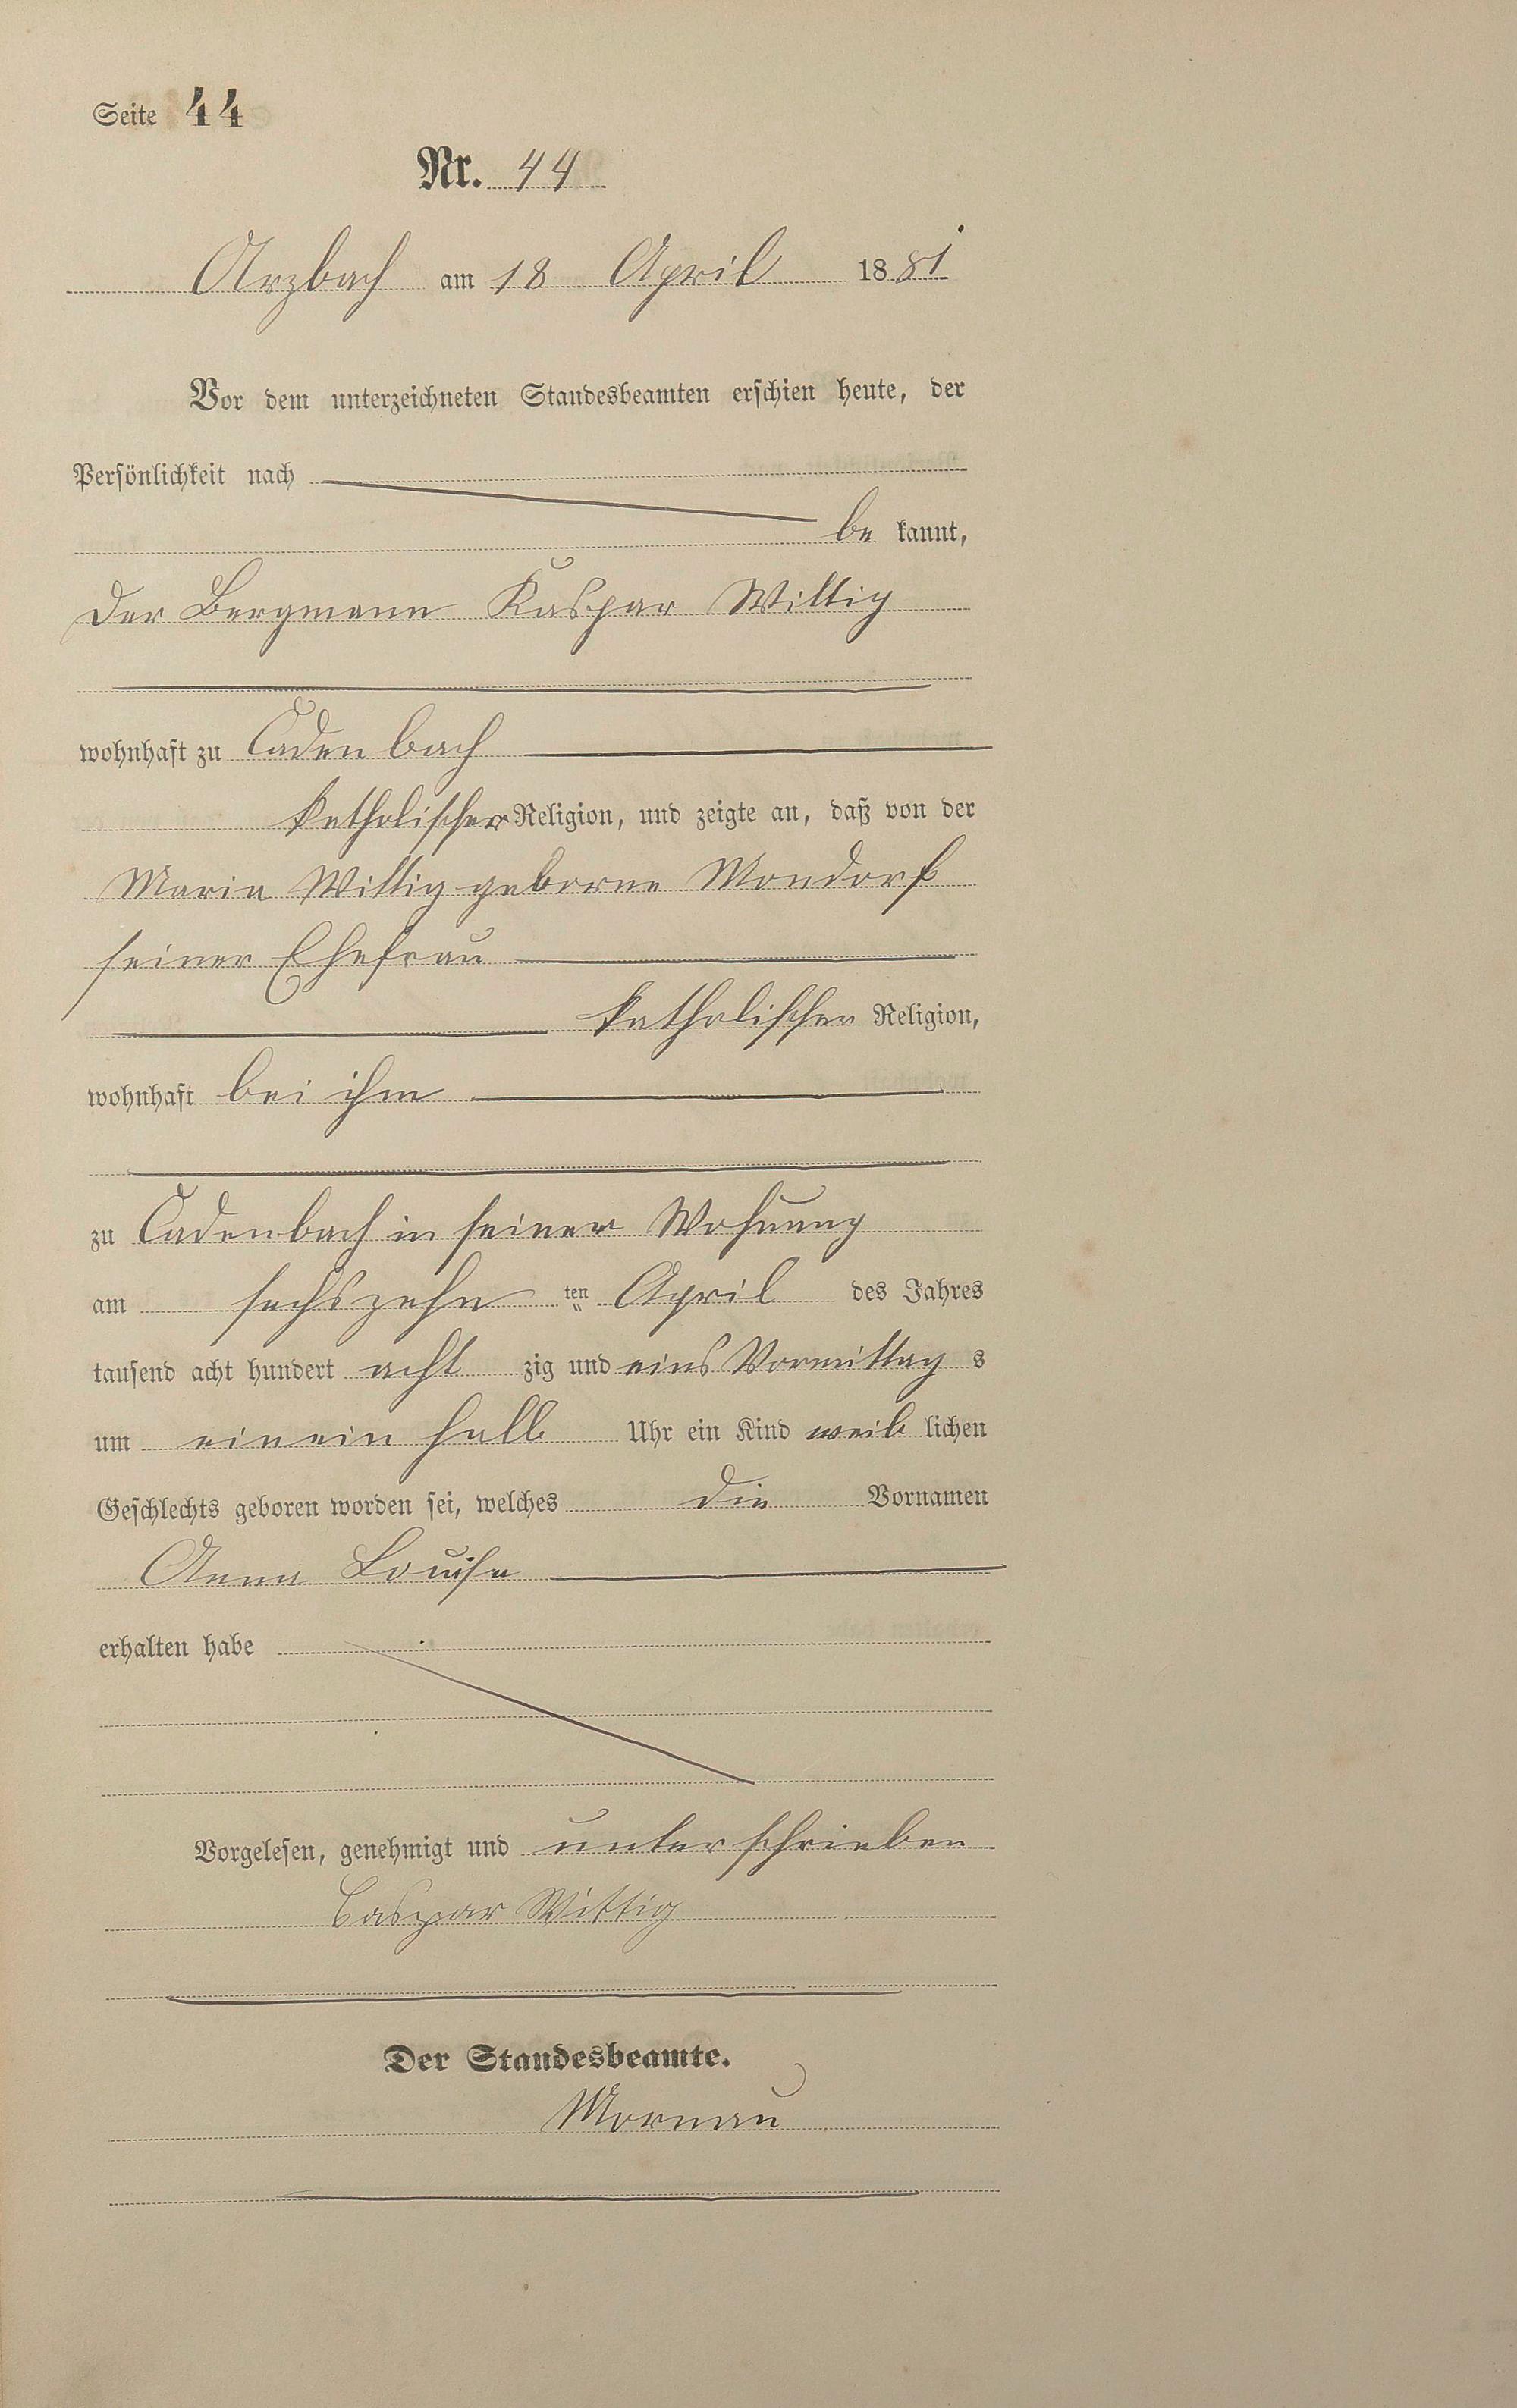 Seite 44
Nr. 44
Arzbach am 18 April 1881
Vor dem unterzeichneten Standesbeamten erschien heute, der
Persönlichkeit nach
be kannt,
der Bergmann Kaspar Wittig
wohnhaft zu Cadenbach
katholischer Religion, und zeigte an, daß von der
Maria Wittig geborne Mondorf
seiner Ehefrau
katholischer Religion,
wohnhaft bei ihm
zu Cadenbach in seiner Wohnung
am sechszehn ten April des Jahres
tausend acht hundert acht zig und eins Vormittag s
um einein halb Uhr ein Kind weib lichen
Geschlechts geboren worden sei, welches die Vornamen
Anna Louise
erhalten habe
Vorgelesen, genehmigt und unterschrieben
Caspar Wittig
Der Standesbeamte.